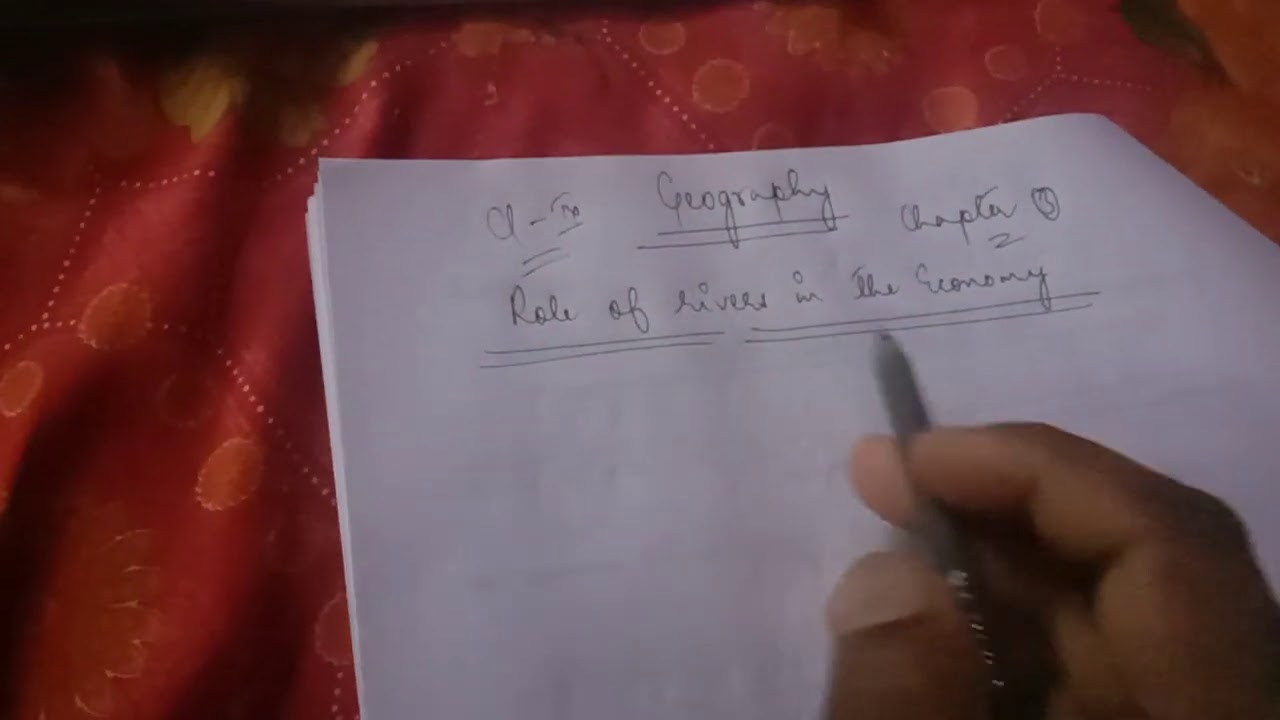 Cl - IX Geography Chapter 3
Role of rivers in the Economy